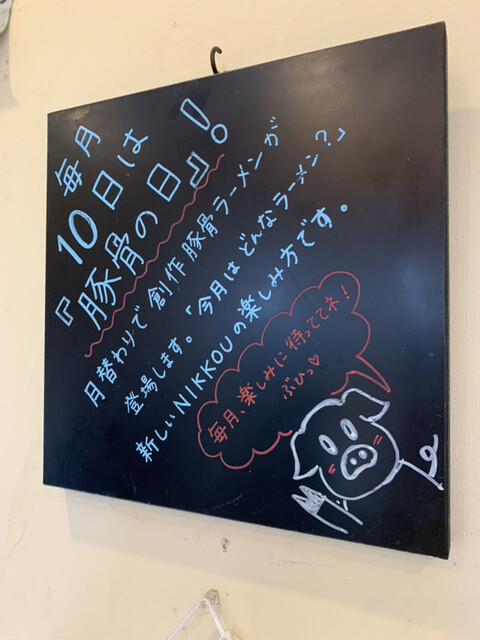 毎月
10日は
『豚骨の日』!
月替わりで創作豚骨ラーメンが
登場します。「今月はどんなラーメン？」
新しいNIKKOUの楽しみ方です。
毎月、楽しみに待っててネ！
ぶひっ♡